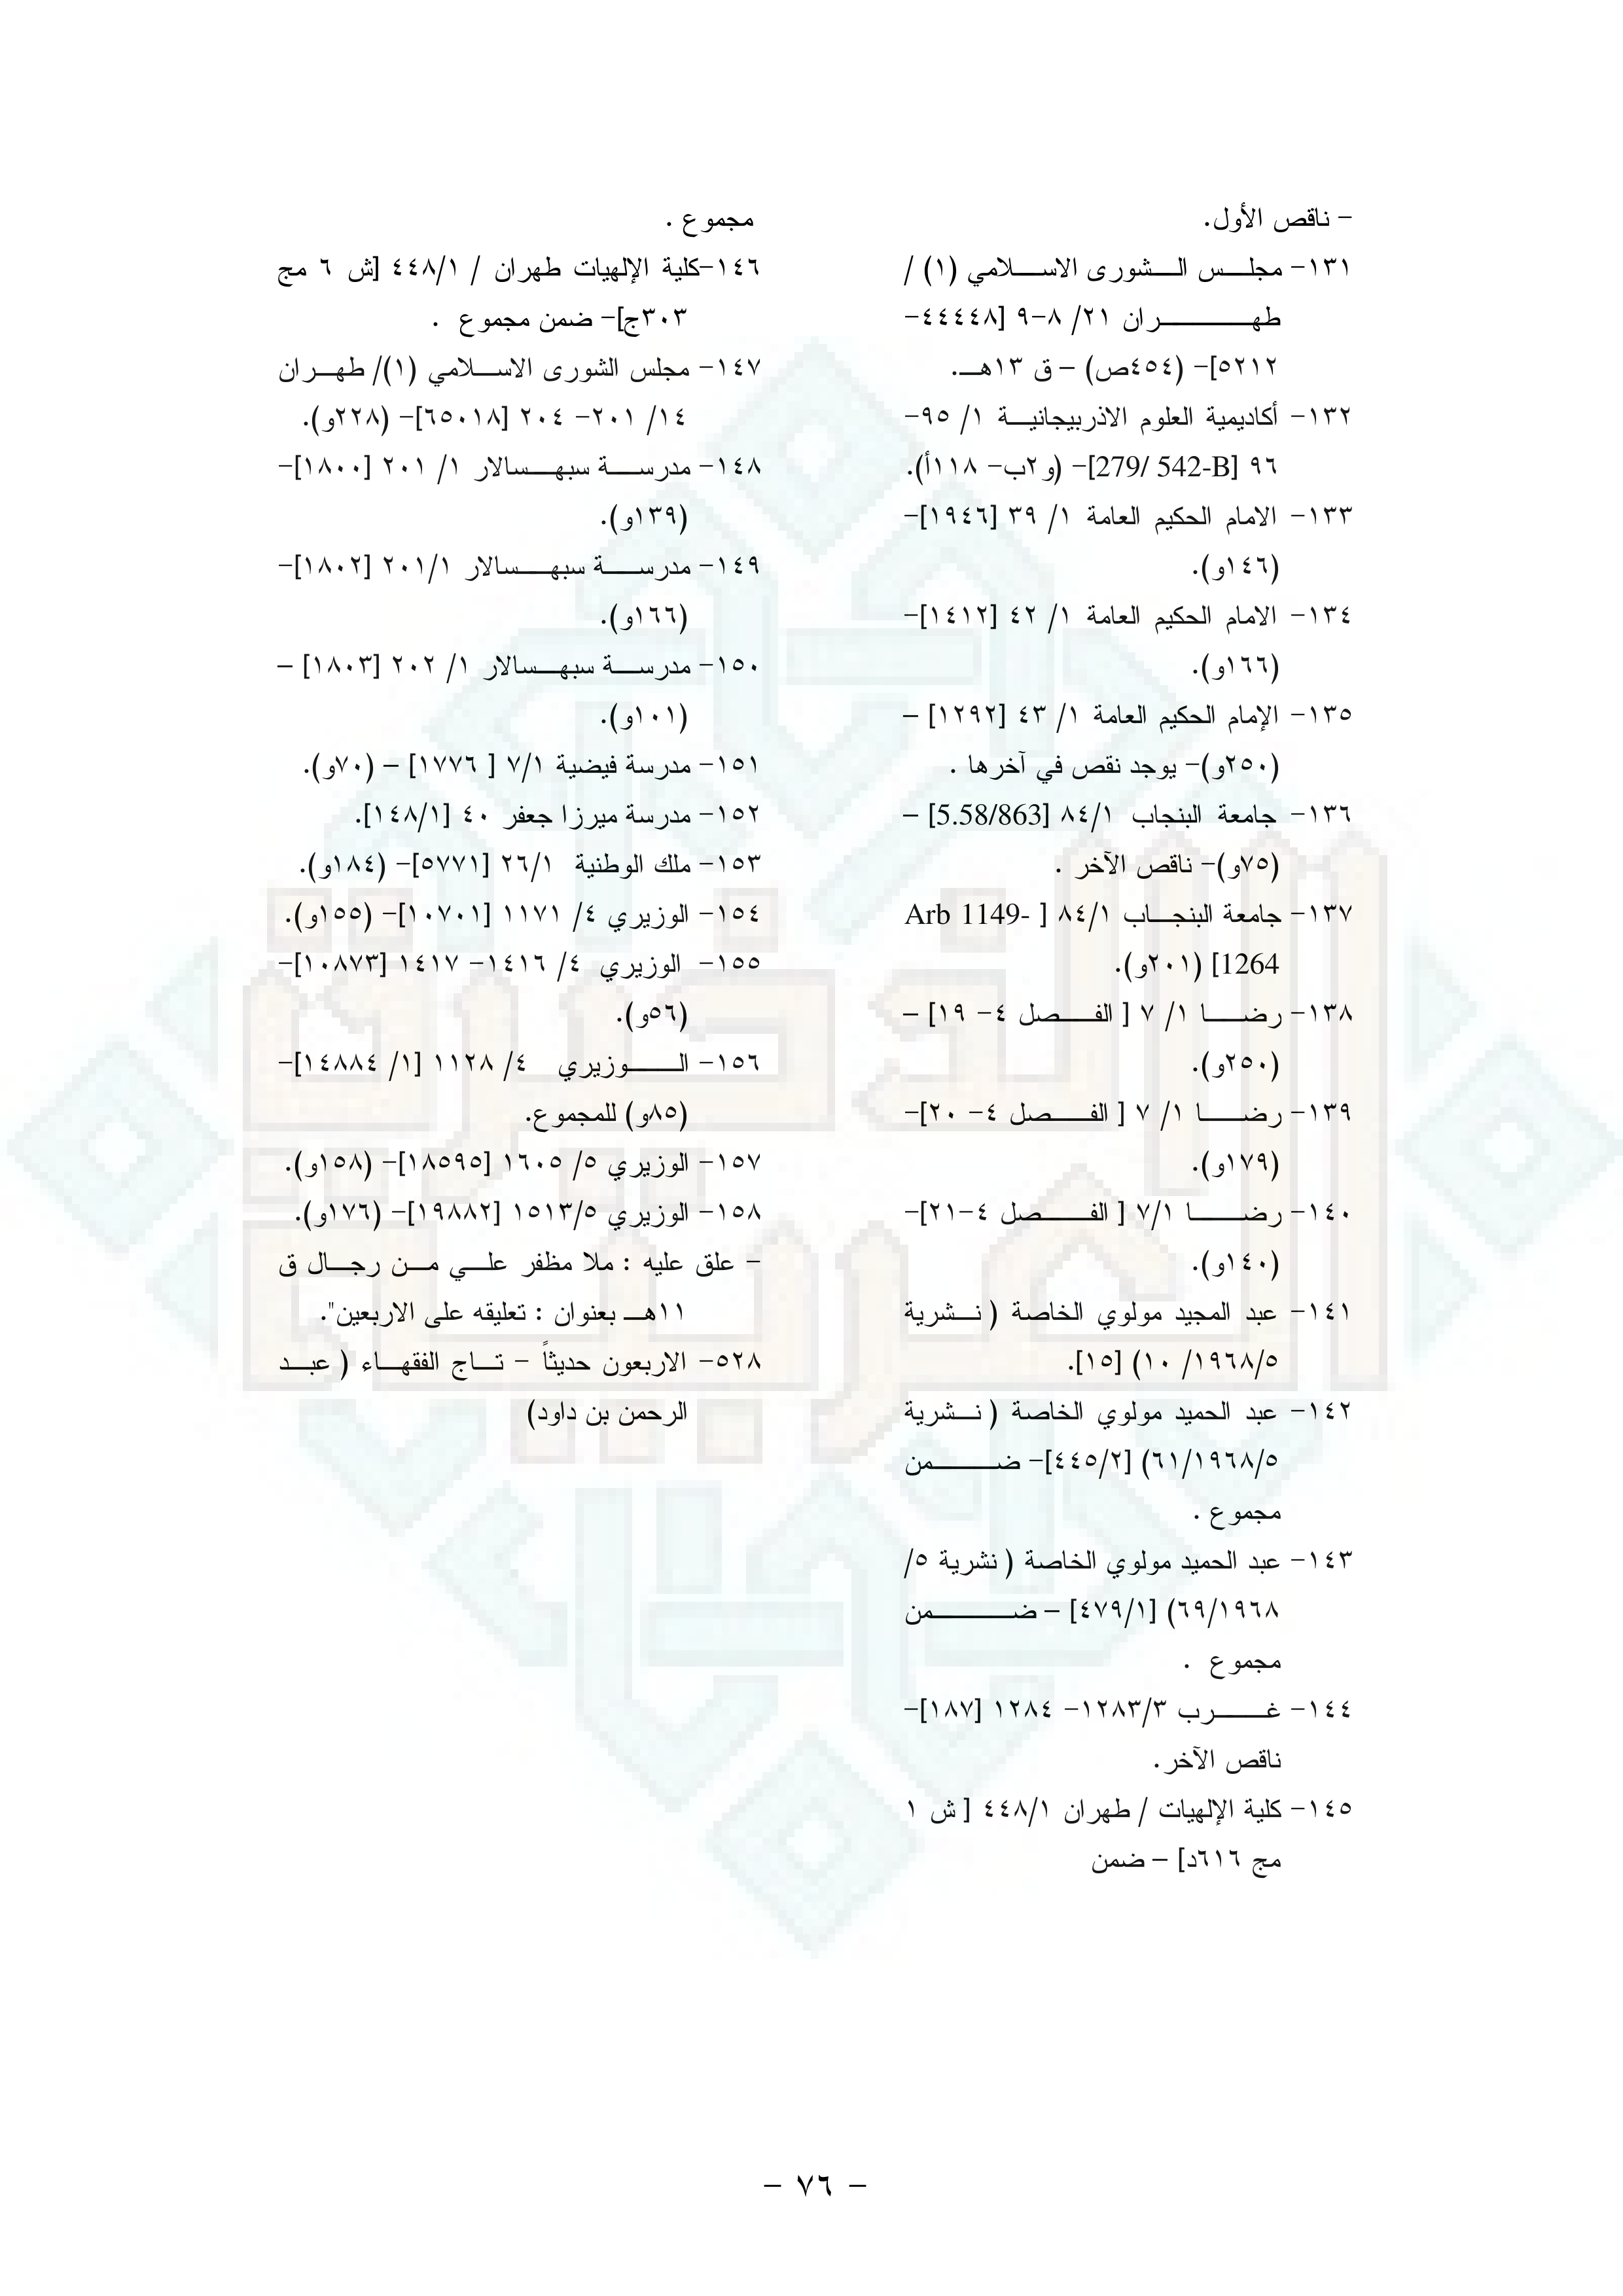 - ناقص الأول.
١٣١- مجلس الشورى الاسلامي (١) /
طهران ٢١/ ٨-٩ [٤٤٤٤٨-
٥٢١٢]- (٤٥٤ص) – ق ١٣هـ.
١٣٢- أكاديمية العلوم الاذربيجانية ١/ ٩٥-
٩٦ [279/ 542-B]- (و٢ب- ١١٨أ).
١٣٣- الامام الحكيم العامة ١/ ٣٩ [١٩٤٦]-
(١٤٦و).
١٣٤- الامام الحكيم العامة ١/ ٤٢ [١٤١٢]-
(١٦٦و).
١٣٥- الإمام الحكيم العامة ١/ ٤٣ [١٢٩٢] –
(٢٥٠و)- يوجد نقص في آخرها .
١٣٦- جامعة البنجاب ٨٤/١ [5.58/863] –
(٧٥و)- ناقص الآخر .
١٣٧- جامعة البنجاب ٨٤/١ [ Arb 1149-
1264] (٢٠١و).
١٣٨- رضا ١/ ٧ [ الفصل ٤- ١٩] –
(٢٥٠و).
١٣٩- رضا ١/ ٧ [ الفصل ٤- ٢٠]-
(١٧٩و).
١٤٠- رضا ٧/١ [ الفصل ٤-٢١]-
(١٤٠و).
١٤١- عبد المجيد مولوي الخاصة ( نشرية
١٩٦٨/٥/ ١٠) [١٥].
١٤٢- عبد الحميد مولوي الخاصة ( نشرية
٦١/١٩٦٨/٥) [٤٤٥/٢]- ضمن
مجموع .
١٤٣- عبد الحميد مولوي الخاصة ( نشرية ٥/
٦٩/١٩٦٨) [٤٧٩/١] – ضمن
مجموع .
١٤٤- غرب ١٢٨٣/٣- ١٢٨٤ [١٨٧]-
ناقص الآخر.
١٤٥- كلية الإلهيات / طهران ٤٤٨/١ [ ش ١
مج ٦١٦د] – ضمن
مجموع .
١٤٦-كلية الإلهيات طهران / ٤٤٨/١ [ش ٦ مج
٣٠٣ج]- ضمن مجموع .
١٤٧- مجلس الشورى الاسلامي (١)/ طهران
١٤/ ٢٠١- ٢٠٤ [٦٥٠١٨]- (٢٢٨و).
١٤٨- مدرسة سبهسالار ١/ ٢٠١ [١٨٠٠]-
(١٣٩و).
١٤٩- مدرسة سبهسالار ٢٠١/١ [١٨٠٢]-
(١٦٦و).
١٥٠- مدرسة سبهسالار ١/ ٢٠٢ [١٨٠٣] –
(١٠١و).
١٥١- مدرسة فيضية ٧/١ [ ١٧٧٦] – (٧٠و).
١٥٢- مدرسة ميرزا جعفر ٤٠ [١٤٨/١].
١٥٣- ملك الوطنية ٢٦/١ [٥٧٧١]- (١٨٤و).
١٥٤- الوزيري ٤/ ١١٧١ [١٠٧٠١]- (١٥٥و).
١٥٥- الوزيري ٤/ ١٤١٦- ١٤١٧ [١٠٨٧٣]-
(٥٦و).
١٥٦- الوزيري ٤/ ١١٢٨ [١/ ١٤٨٨٤]-
(٨٥و) للمجموع.
١٥٧- الوزيري ٥/ ١٦٠٥ [١٨٥٩٥]- (١٥٨و).
١٥٨- الوزيري ١٥١٣/٥ [١٩٨٨٢]- (١٧٦و).
- علق عليه : ملا مظفر علي من رجال ق
١١هـ بعنوان : تعليقه على الاربعين".
٥٢٨- الاربعون حديثاً - تاج الفقهاء ( عبد
الرحمن بن داود)
- ٧٦ -
الذخيرة
العربية